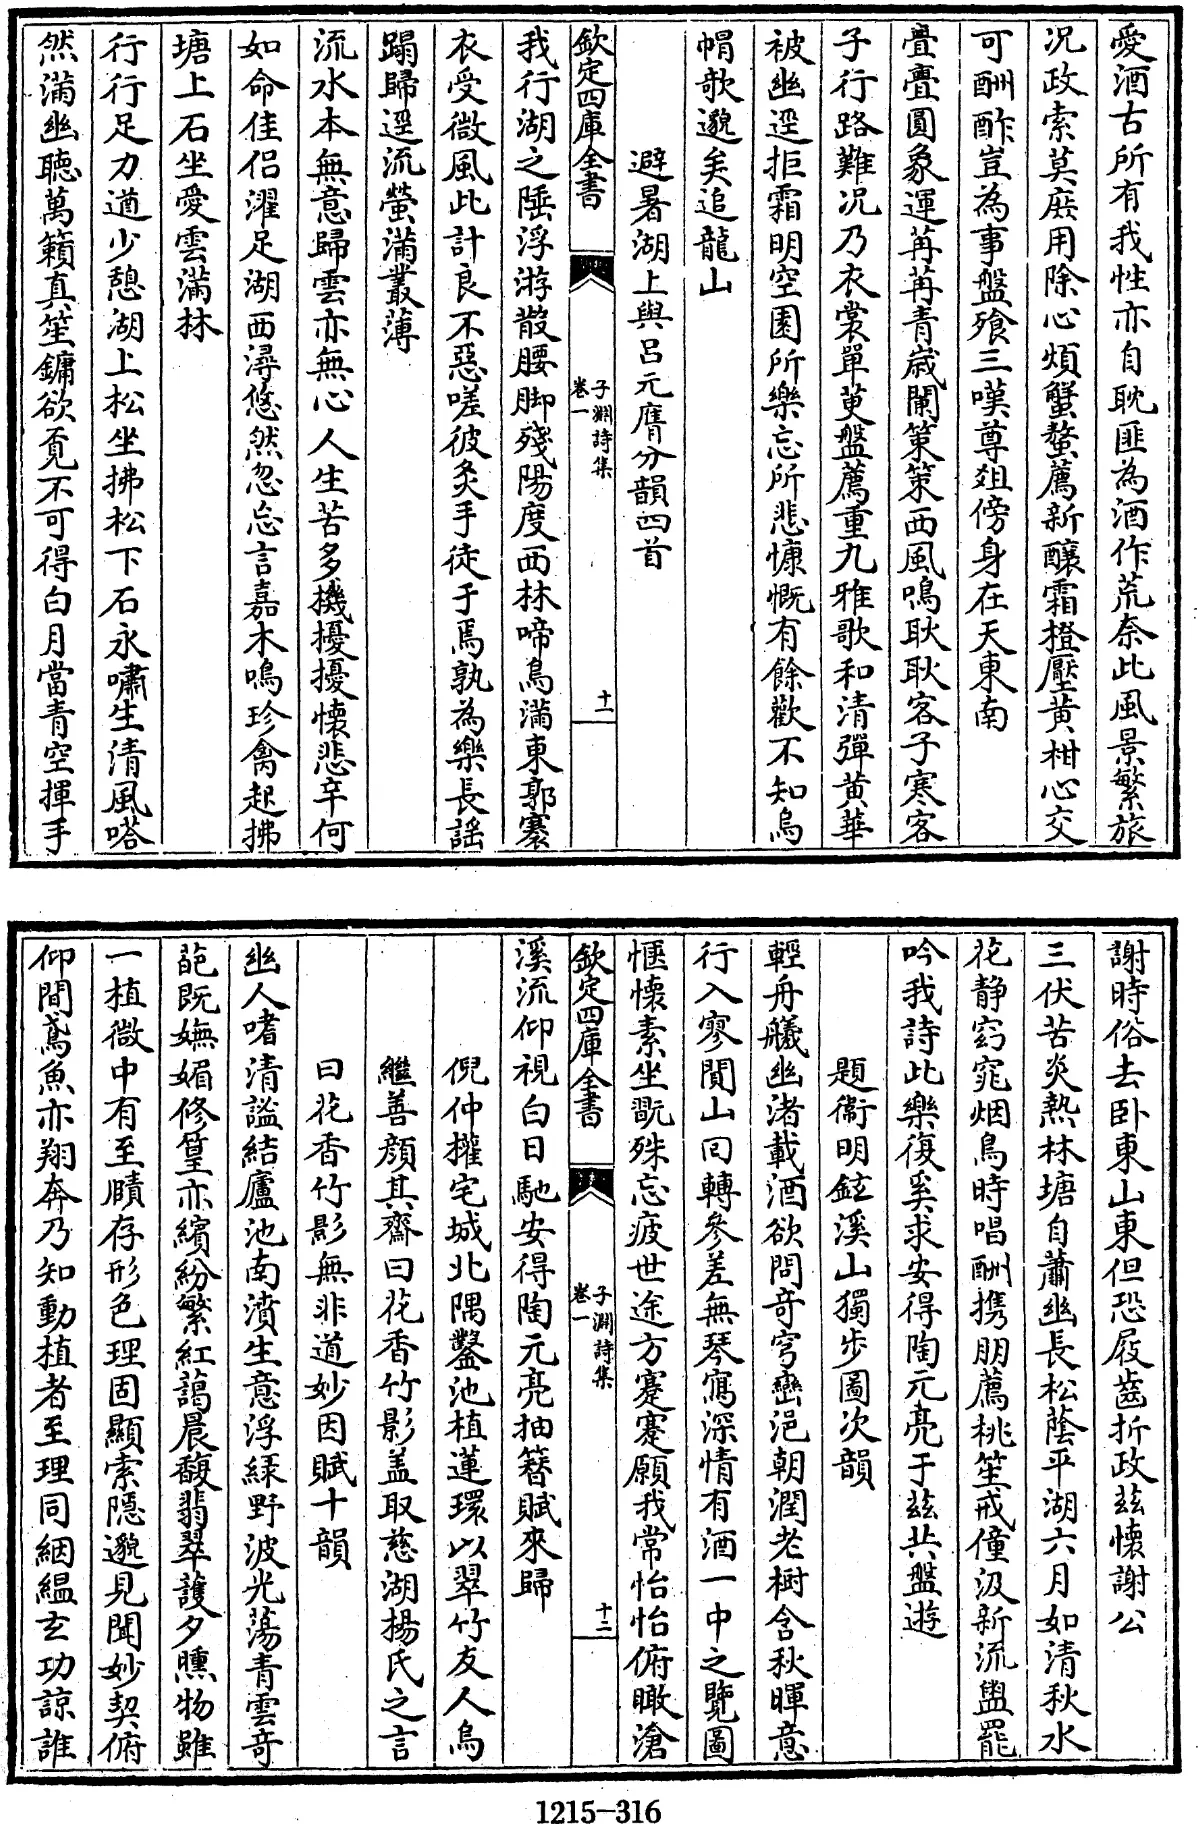 愛酒古所有我性亦自耽匪為酒作荒奈此風景繁旅
况政索莫庶用除心煩蟹螯薦新釀霜橙壓黄柑心交
可酬酢豈為事盤飱三嘆尊爼傍身在天東南
亹亹圓象運苒苒青歳闌策策西風鳴耿耿客子寒客
子行路難况乃衣裳單萸盤薦重九雅歌和清彈黄華
被幽逕拒霜明空園所樂忘所悲慷慨有餘歡不知烏
帽欹邈矣追龍山
避暑湖上與吕元膺分韻四首
欽定四庫全書
子淵詩集
卷一
十一
我行湖之陲浮游散腰脚殘陽度西林啼鳥滿東郭褰
衣受微風此計良不惡嗟彼炙手徒于焉孰為樂長謡
蹋歸逕流螢滿叢薄
流水本無意歸雲亦無心人生苦多機擾擾懐悲辛何
如命佳侣濯足湖西潯悠然忽忘言嘉木鳴珍禽起拂
塘上石坐愛雲滿林
行行足力遒少憩湖上松坐拂松下石永嘯生清風嗒
然滿幽聽萬籟真笙鏞欲覔不可得白月當青空揮手
謝時俗去卧東山東但恐屐齒折政兹懐謝公
三伏苦炎熱林塘自蕭幽長松蔭平湖六月如清秋水
花静窈窕烟鳥時唱酬携朋薦桃笙戒僮汲新流盥罷
吟我詩此樂復奚求安得陶元亮于兹共盤遊
題衞明鉉溪山獨步圖次韻
輕舟艤幽渚載酒欲問奇穹巒浥朝潤老樹含秋暉意
行入寥閴山囘轉參差無琴寫深情有酒一中之覽圖
愜懐素坐翫殊忘疲世途方蹇蹇願我常怡怡俯瞰滄
欽定四庫全書
子淵詩集
卷一
十二
溪流仰視白日馳安得陶元亮抽簮賦來歸
倪仲權宅城北隅鑿池植蓮環以翠竹友人烏
繼善顔其齋曰花香竹影盖取慈湖揚氏之言
曰花香竹影無非道妙因賦十韻
幽人嗜清謐結廬池南濆生意浮緑野波光蕩青雲奇
葩既嫵媚修篁亦繽紛繁紅藹晨馥翡翠護夕曛物雖
一植微中有至賾存形色理固顯索隠邈見聞妙契俯
仰間鳶魚亦翔奔乃知動植者至理同絪緼玄功諒誰
1215-316